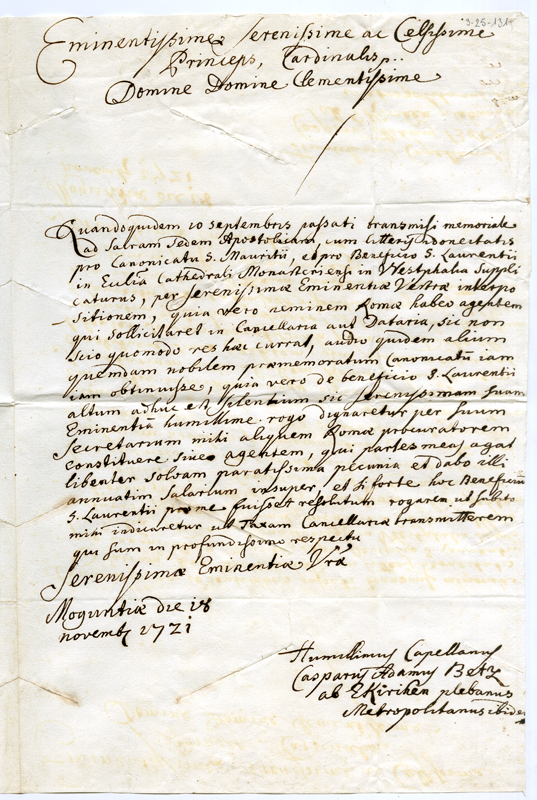 3-25-1314
Eminentissime Serenissime ac Celsissime
Princeps, Cardinalis,
Domine Domine Clementissime
Quandoquidem 10 septembris passati transmisi memoriale
ad Sacram Sedem Apostolicam, cum litteris idoneitatis
pro Canonicatu S. Mauritii, et pro Beneficio S. Laurentii
in Ecclia Cathedrali Monasteriensi in Westphalia suppli
caturus, per Serenissimæ Eminentiæ Vestræ interpo
sitionem, quia vero neminem Romæ habeo agentem
qui sollicitaret in Cancellaria aut Dataria, sic non
scio quomodo res hæc currat, audio quidem alium
quemdam nobilem præmemoratum Canonicatum iam
iam obtinuisse, quia vero de beneficio S. Laurentii
altum adhuc est silentium sic serenissimam suam
Eminentiã humillime rogo dignaretur per suum
Secretarium mihi aliquem Romæ procuratorem
constituere sive agentem, qui partes meas agat
libenter solvam paratissima pecunia et dabo illi
annuatim salarium insuper, et si forte hoc Beneficiũ
S. Laurentii pro me fuisset resolutum rogarem ut subito
mihi indicaretur ut Taxam Cancellariæ transmitterem
qui sum in profundissimo respectu
Serenissimæ Eminentiæ Vræ
Moguntiæ die 18
novemb 1721
Humillimus Capellanus
Casparus Adamus Betz
ab EKirchen plebanus
Metropolitanus ibidem